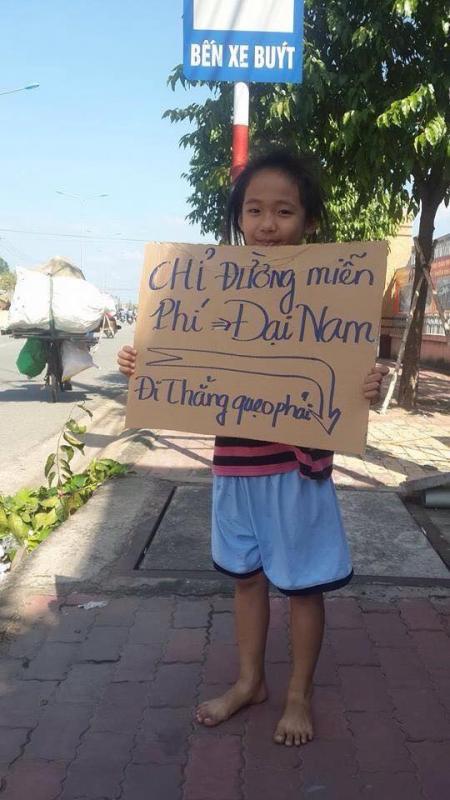 BẾN XE BUÝT
CHỈ ĐƯỜNG miễn
Phí ⇒ Đại Nam
Đi Thẳng quẹo phải